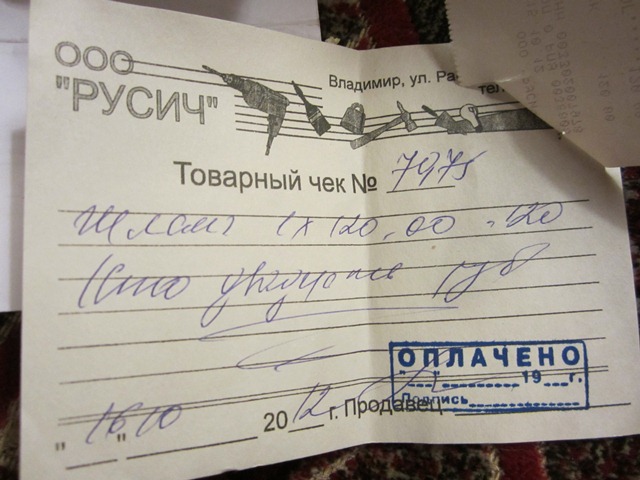 ООО
"РУСИЧ"
Владимир, ул. Ра
тел.
Товарный чек № 7975
Шланг 1 х 120,00 = 120
(Сто двадцать руб
ОПЛАЧЕНО
"__"________19__г.
Подпись
"16" 10 2012 г. Продавец